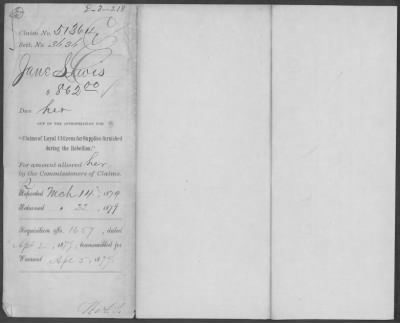 Claim No. 51364
Sett. No. 3636
Jane Lewis
$ 862.00
Due her
OUT OF THE APPROPRIATION FOR
"Claims of Loyal Citizens for Supplies furnished
during the Rebellion."
For amount allowed her
by the Commissioners of Claims.
Reported Mch 14, 1879
Returned " 22, 1879
Requisition No. 1657, dated
Apl 2, 1879, transmitted for
Warrant Apl 5, 1879